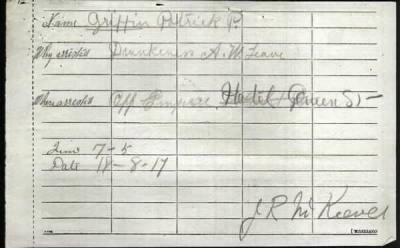 Name Griffin Patrick P
Why arrested Drunkeness A.W. Leave
Where arrested Off Empire Hotel Queen St
Time 7-5
Date 18-8-17
J R McKeever